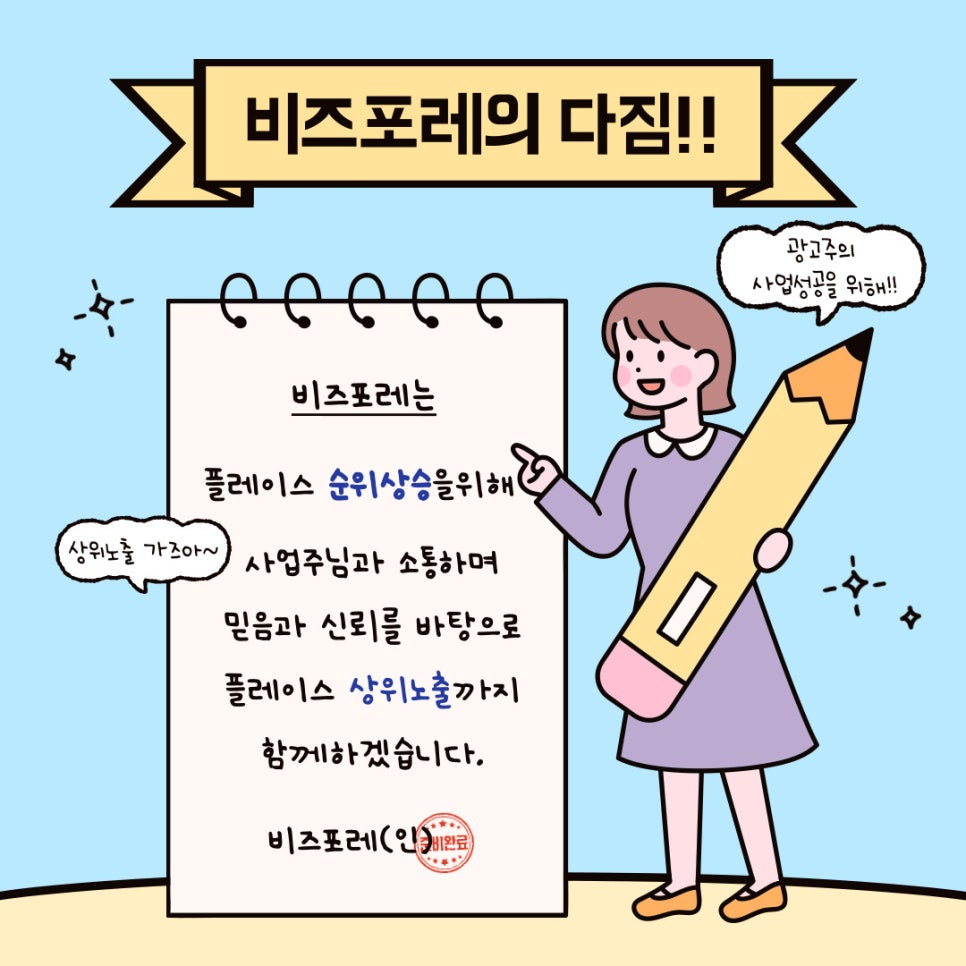 비즈포레의 다짐!!
광고주의
사업성공을 위해!!
비즈포레는
플레이스 순위상승을위해
상위노출 가즈아~
사업주님과 소통하며
믿음과 신뢰를 바탕으로
플레이스 상위노출까지
함께하겠습니다.
비즈포레(인)
준비완료